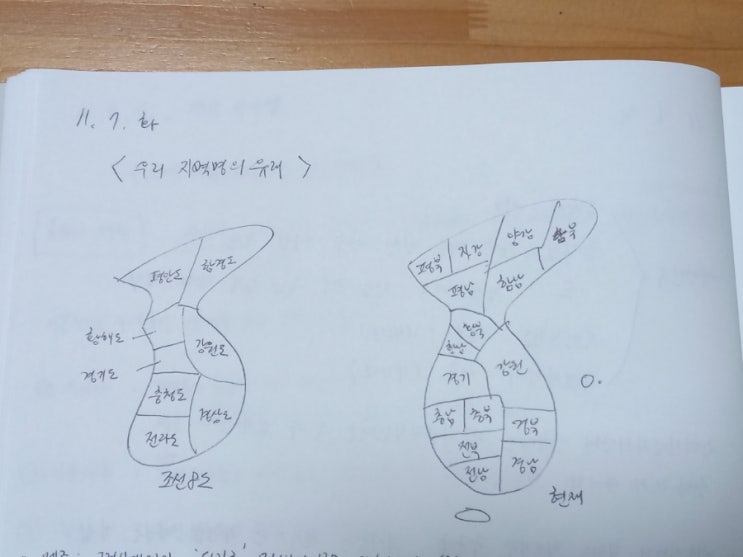 11. 7. 화
< 우리 지역명의 유래 >
평안도
함경도
황해도
강원도
경기도
충청도
경상도
전라도
조선8도
평북
자강
양강
함북
평남
함남
황북
황남
경기
강원
충남
충북
경북
전북
전남
경남
현재